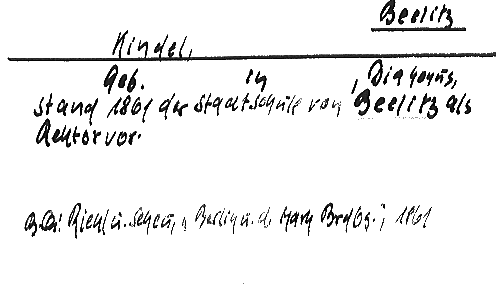 Beelitz
Kindel,
Geb. in , Diaconus,
stand 1861 der Stadtschule von Beelitz als
Rektor vor.
Riehl u. Scheu, "Berlin u. d. Mark Brdbg.", 1861